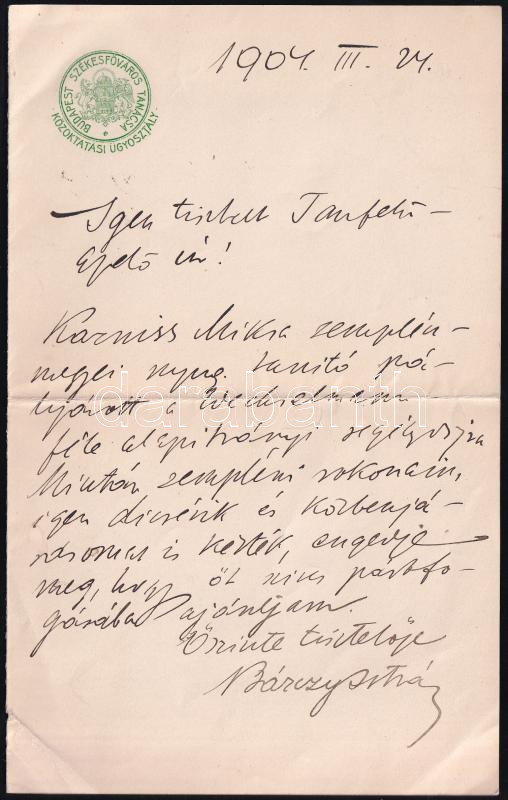 BUDAPEST SZÉKESFŐVÁROS TANÁCSA
KÖZOKTATÁSI ÜGYOSZTÁLY
1904. III. 24.
Igen tisztelt Tanfelü-
gyelő úr!
Karniss Miksa zemplén-
megyei nyug. tanító pá-
lyázott a Wechselmann-
féle alapítványi segélydíjra
Miután zempléni rokonaim,
igen dicsérik és közbenjá-
rásomat is kérték, engedje
meg, hogy őt szives pártfo-
gásába ajánljam.
Őszinte tisztelője
Bárczy István
darabanth